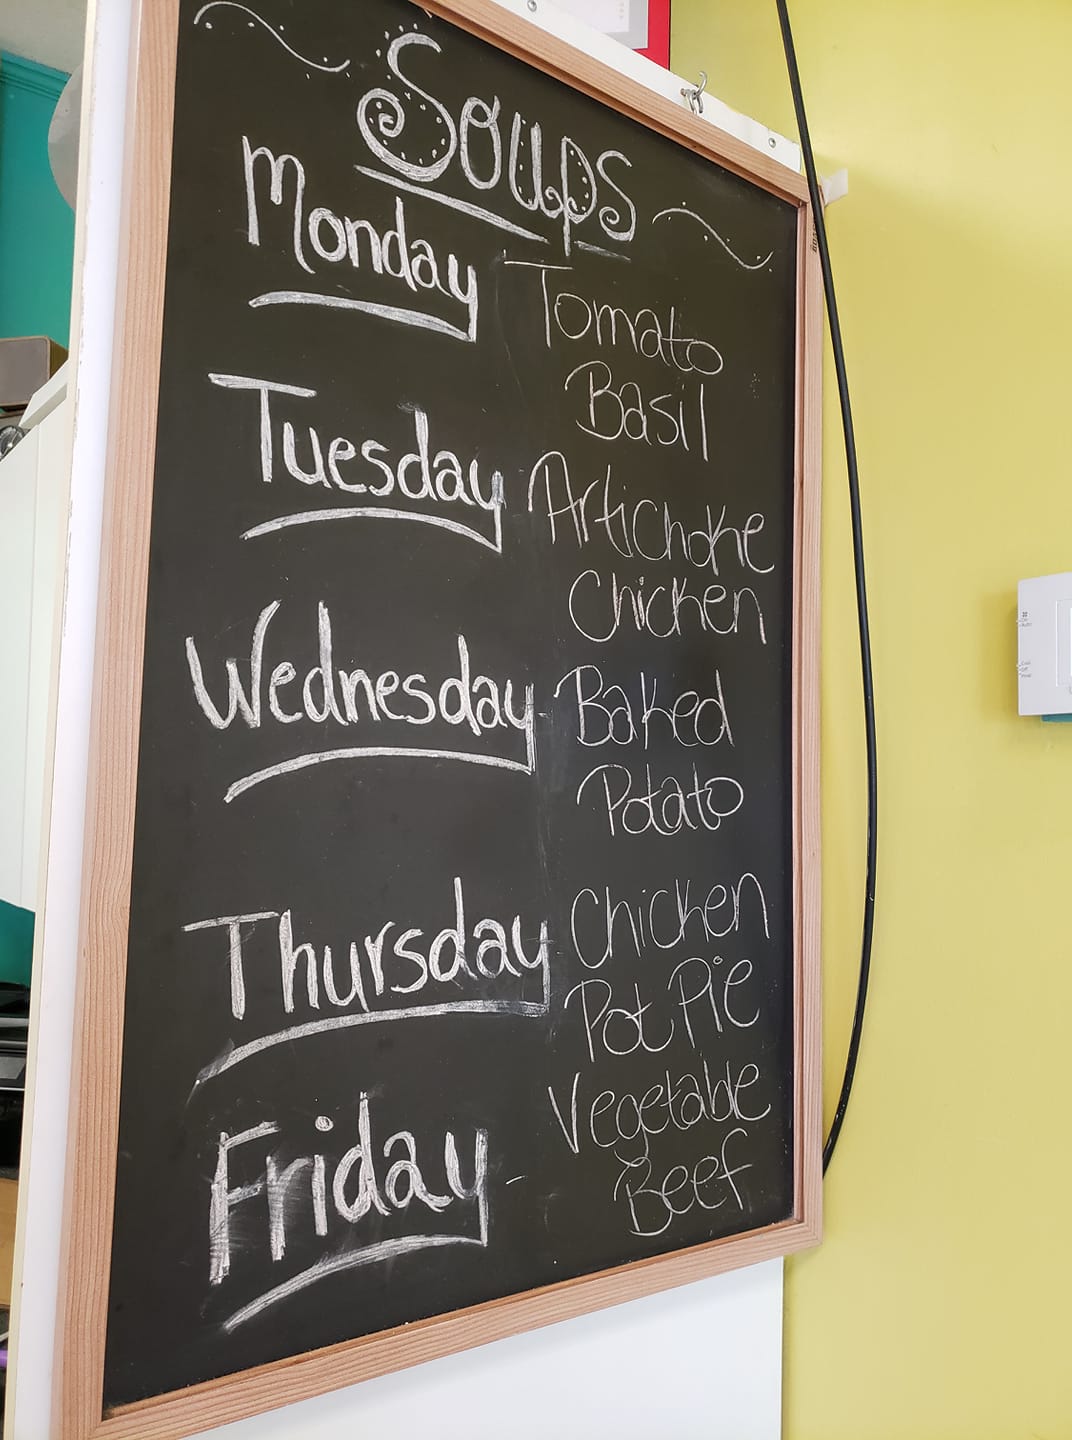 Soups
Monday
Tomato
Basil
Tuesday
Artichoke
Chicken
Wednesday
Baked
Potato
Thursday
Chicken
Pot Pie
Friday
Vegetable
Beef